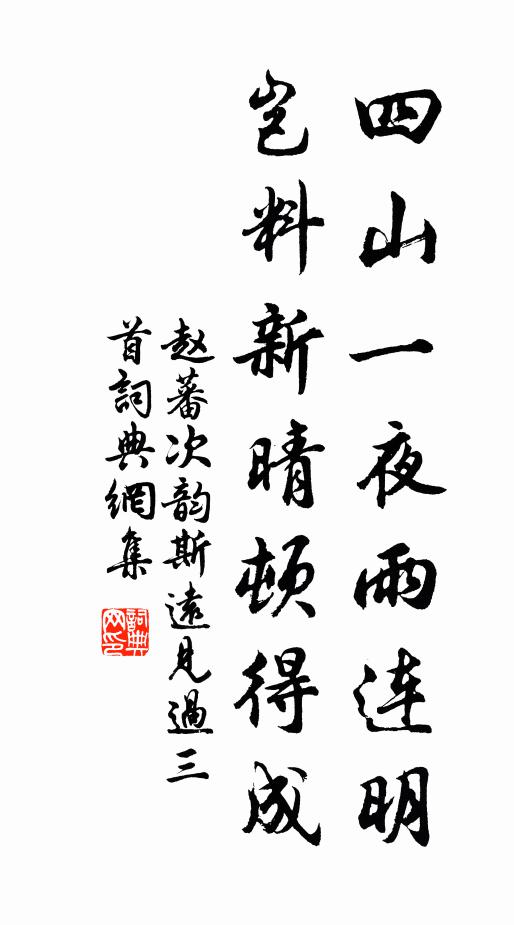 四山一夜雨连明
岂料新晴頓得成
赵蕃次韵斯遠見過三
首詞典網集
詞典网印